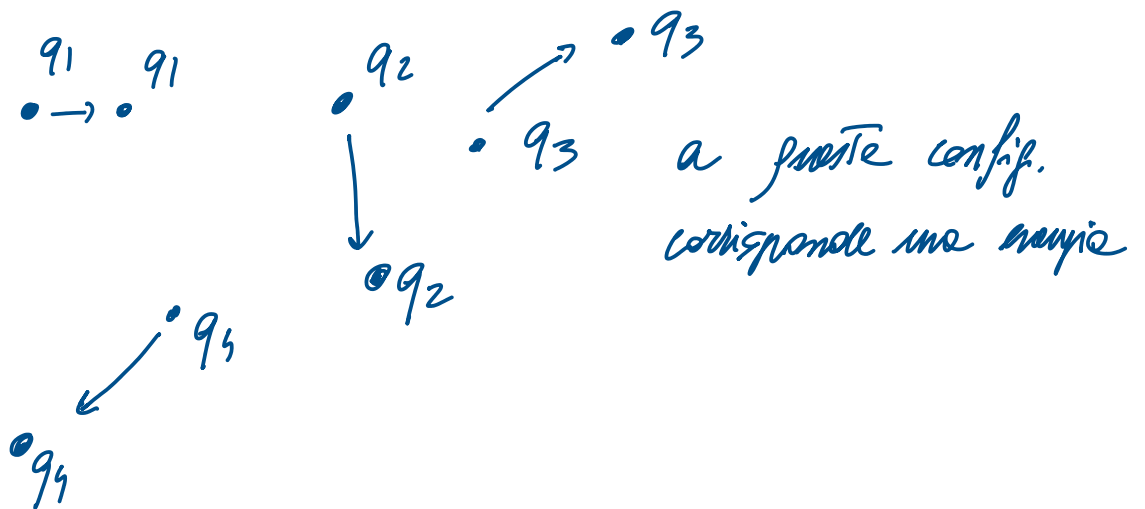 q1 q1 q2 q3
q3
a queste config.
corrisponde una energia
q2
q4
q4